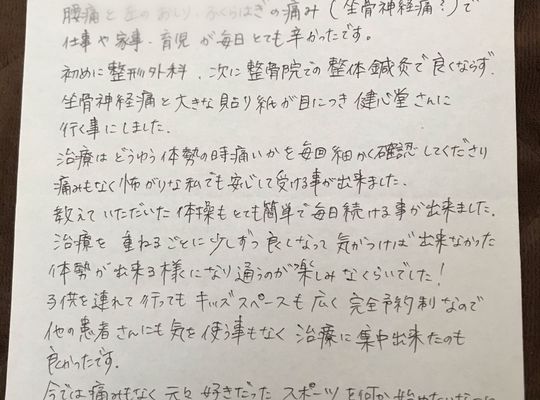 腰痛と左のおしり、ふくらはぎの痛み(坐骨神経痛?)で
仕事や家事・育児が毎日とても辛かったです。
初めに整形外科、次に整骨院での整体鍼灸で良くならず、
坐骨神経痛と大きな貼り紙が目につき健心堂さんに
行く事にしました。
治療はどうゆう体勢の時痛いかを毎回細かく確認してくださり
痛みもなく怖がりな私でも安心して受ける事が出来ました。
教えていただいた体操もとても簡単で毎日続ける事が出来ました。
治療を重ねるごとに少しずつ良くなって気がつけば出来なかった
体勢が出来る様になり通うのが楽しみなくらいでした!
子供を連れて行ってもキッズスペースも広く完全予約制なので
他の患者さんにも気を使う事もなく治療に集中出来たのも
良かったです。
今では痛みもなく元々好きだったスポーツを何か始めたいなって